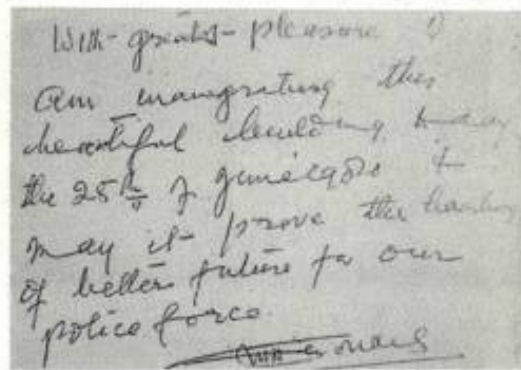 With - greatest - pleasure I
am inaugrating this
beautiful building today
the 25th of June 1950 &
may it prove the
of better future for our
police force.